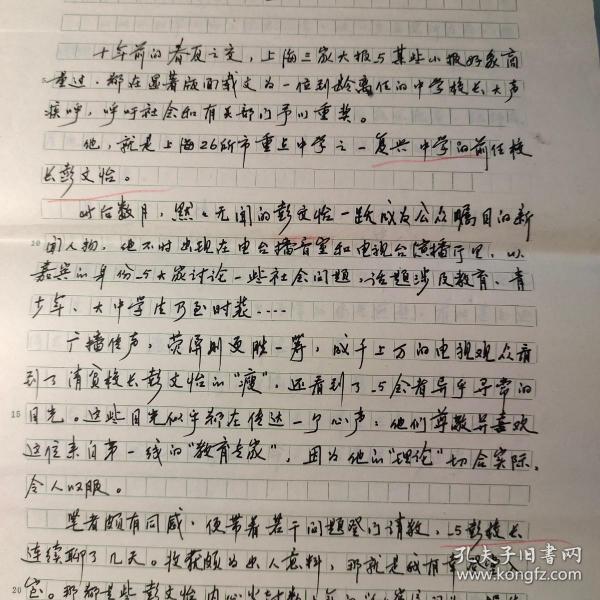 十年前的春夏之交，上海三家大报与某些小报好象商
5 量过，都在显著版面载文为一位到龄离任的中学校长大声
疾呼，呼吁社会和有关部门予以重奖。
他，就是上海26所市重点中学之一复兴中学的前任校
长彭文怡。
此后数月，默々无闻的彭文怡一跃成为公众瞩目的新
10 闻人物，他不时出现在电台播音室和电视台演播厅里，以
嘉宾的身份与大家讨论一些社会问题，话题涉及教育、青
少年、大中学生乃至时装……
广播传声，荧屏则更胜一筹，成千上万的电视观众看
到了清贫校长彭文怡的“瘦”，还看到了与会者异乎寻常的
15 目光。这些目光似乎都在传达一个心声：他们尊敬并喜欢
这位来自第一线的“教育专家”，因为他的“理论”切合实际，
令人以服。
笔者颇有同感，便带着若干问题登门请教，与彭校长
连续聊了几天。收获颇为出人意料，那就是
20 那都是些彭文怡内心
孔夫子旧书网
www.kongfz.com